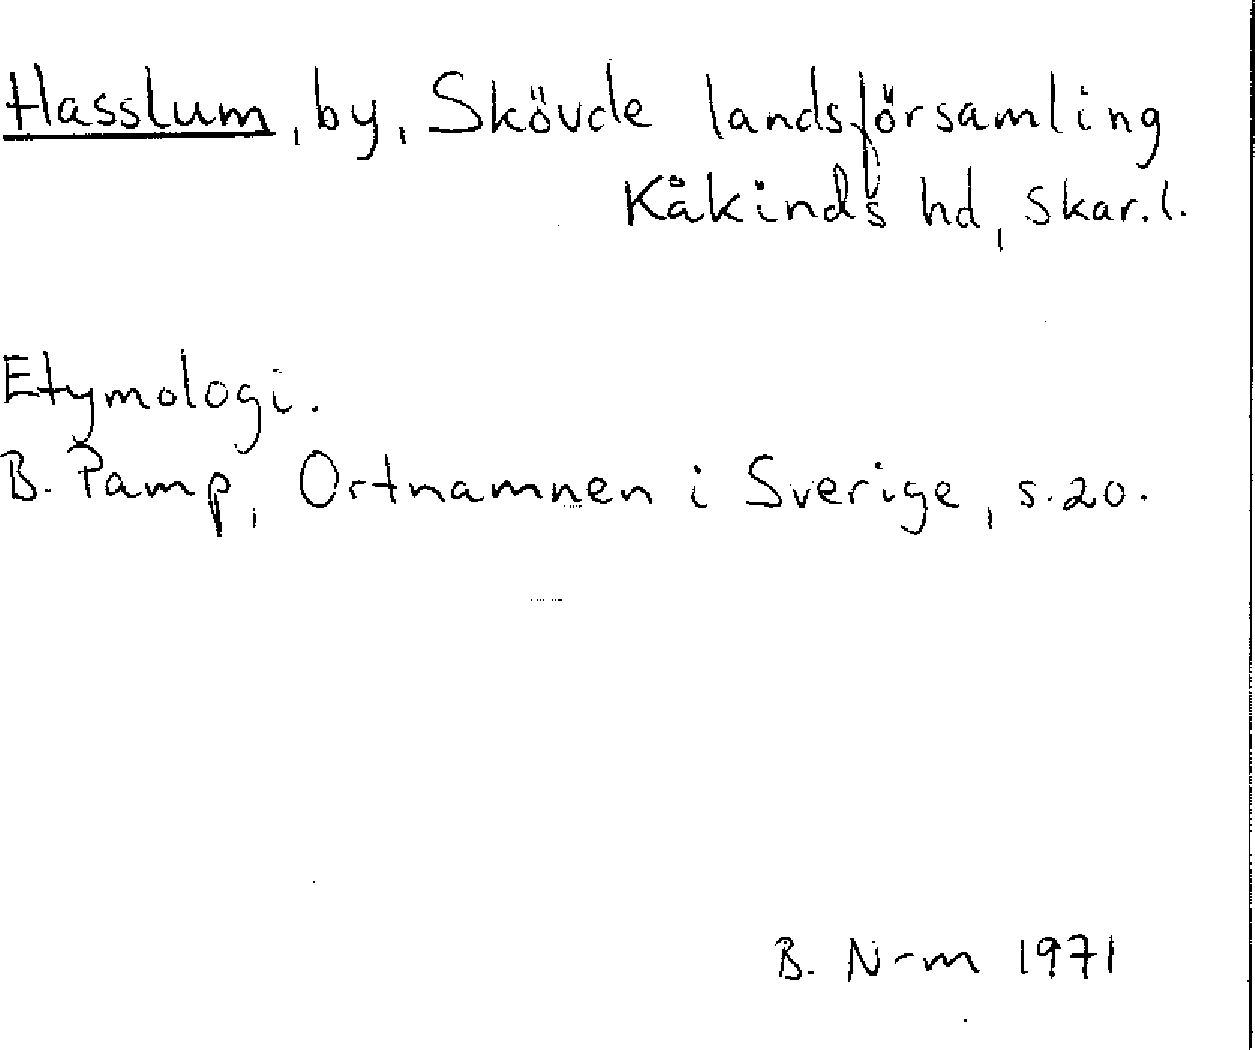 Hasslum, by, Skövde landsförsamling
Kåkinds hd, Skar.l.
Etymologi.
B. Pamp, Ortnamnen i Sverige, s.20.
B. N-m 1971